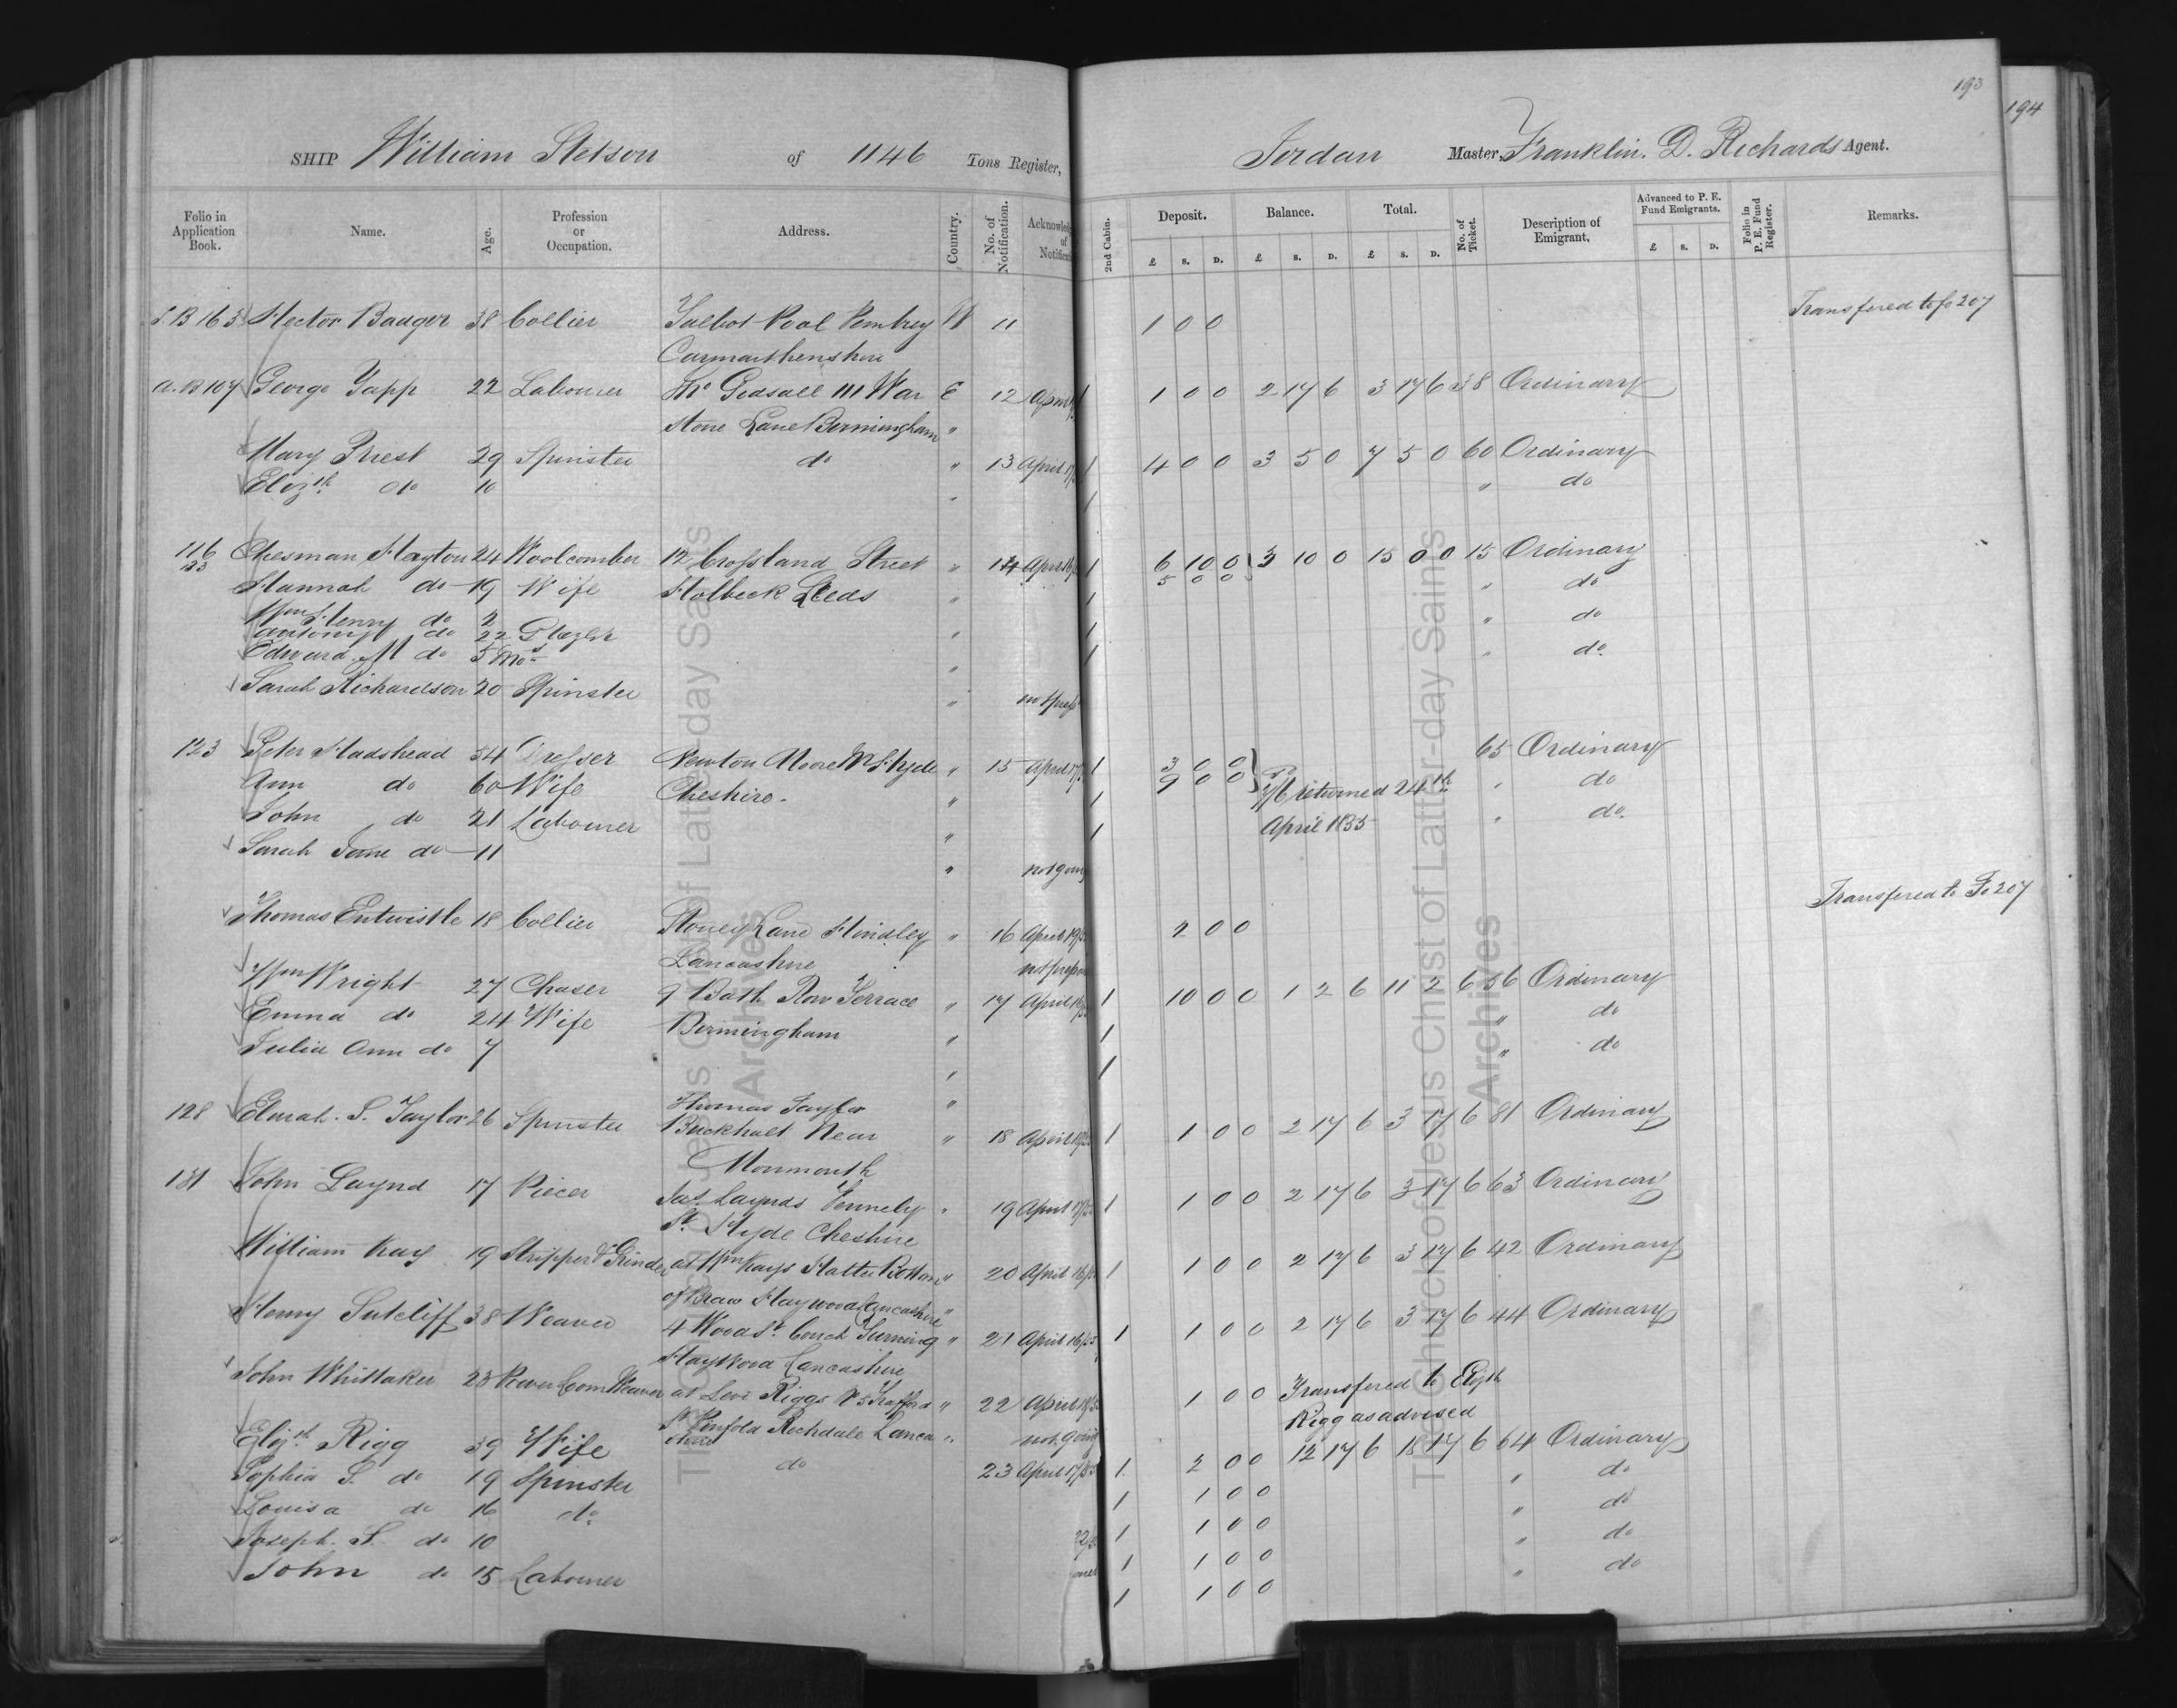 193
194
SHIP William Stetson of 1146 Tons Register, Jordan Master, Franklin. D. Richards Agent.
Folio in Application Book. Name. Age. Profession or Occupation. Address. Country. No. of Notification. Acknowled of Notificati 2nd Cabin. Deposit. Balance. Total. No. of Ticket. Description of Emigrant. Advanced to P. E. Fund Emigrants. Folio in P. E. Fund Register. Remarks.
£ S. D. £ S. D. £ S. D. £ S. D.
Hector Badger 38 Collier Talbot Pool Pembrey W 11 1 0 0 Transfered to fo 207
Carmarthenshire
A.B 107 George Yapp 22 Labourer Godsall 111 War E 12 1 0 0 2 17 6 3 17 6 38 Ordinary
stone Lane Birmingham "
Mary Priest 29 Spinster do " 13 April 17 1 4 0 0 3 5 0 7 5 0 60 Ordinary
Elizth do 10 " 1 " do
116 Chesman Hayton 24 Woolcomber 12 Crossland Street " 14 April 16 1 6 10 0 3 10 0 15 0 0 15 Ordinary
123 Hannah do 19 Wife Holbeck Leeds " 1 5 0 0 " do
Wm Henry do 2 1 " do
Antony do 22 "
Edward M do 5 Mos " 1 " do
Sarah Richardson 20 Spinster "
123 Peter Hadshead 54 Dresser Newton Moore Nr Hyde " 15 April 17 1 3 0 0 65 Ordinary
Ann do 60 Wife Cheshire. " 1 9 0 0 returned 24th " do
John do 21 Labourer " 1 April 1855 " do
Sarah Jane do 11 " not going
Thomas Entwistle 18 Collier Stoney Lane Hindley " 16 April 19 2 0 0 Transfered to Fo 207
Lancashire
Wm Wright 27 Chaser 9 Bath Row Terrace " 17 April 16 1 10 0 0 1 2 6 11 2 6 56 Ordinary
Emma do 24 Wife Birmingham " 1 " do
Julia Ann do 7 " 1 " do
128 S. Taylor 26 Spinster Thomas Taylor "
Buckholt Near " 18 April 1 1 0 0 2 17 6 3 17 6 81 Ordinary
Monmouth
131 John Laynd 17 Piecer Jas. Laynds " 19 April 1 1 0 0 2 17 6 3 17 6 63 Ordinary
St Hyde Cheshire
William Kay 19 Stripper & Grinder at Wm Kays " 20 April 16 1 1 0 0 2 17 6 3 17 6 42 Ordinary
of Haywood Lancashire "
Henry Sutcliff 38 Weaver 4 Wood St. " 21 April 16/55 1 1 0 0 2 17 6 3 17 6 44 Ordinary
Haywood Lancashire
John Whittaker 23 Power Loom Weaver at Levi Riggs No 5 Trafford " 22 April 1 0 0 Transfered to Elizth
St Penfold Rochdale Lanca " not going Rigg as advised
shire
Elizth Rigg 39 Wife do 23 April 17/55 1 2 0 0 12 17 6 18 17 6 64 Ordinary
Sophia S. do 19 Spinster 1 1 0 0 " do
Louisa do 16 do 1 1 0 0 " do
Joseph. S. do 10 1 1 0 0 " do
John do 15 Labourer 1 1 0 0 " do
The Church of Jesus Christ of Latter-day Saints
Archives
The Church of Jesus Christ of Latter-day Saints
Archives